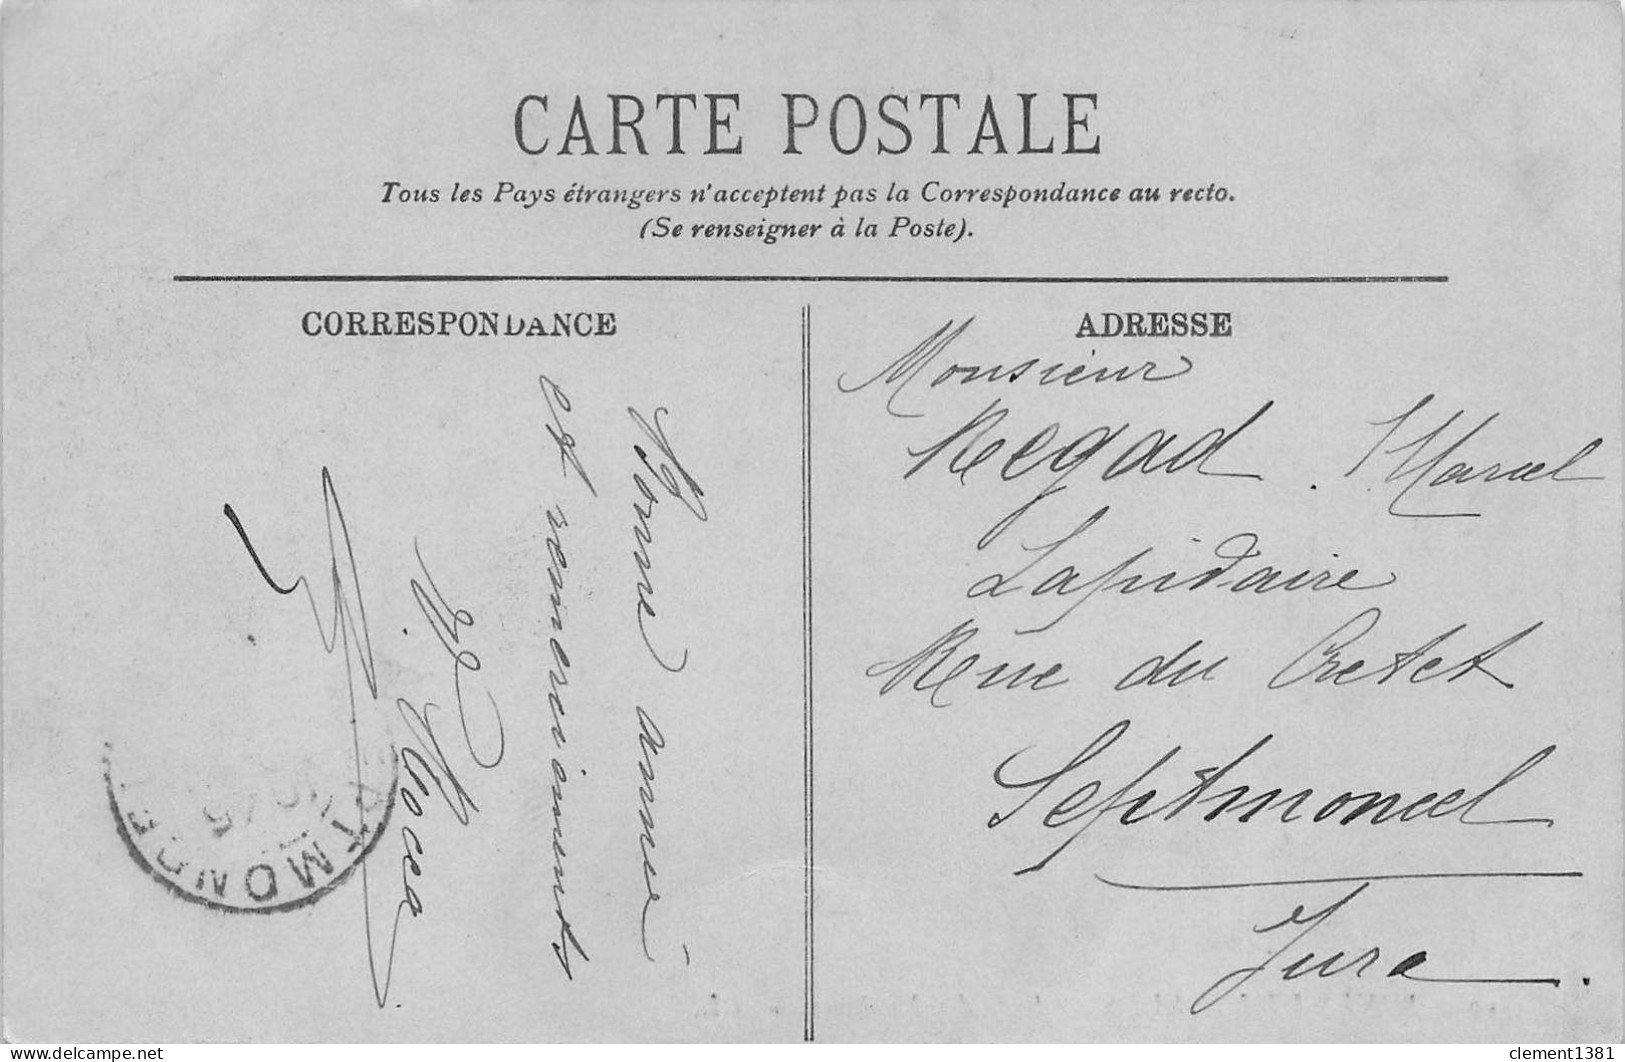 CARTE POSTALE
Tous les Pays étrangers n'acceptent pas la Correspondance au recto.
(Se renseigner à la Poste).
CORRESPONDANCE
Bonne année
et remerciements
ADRESSE
Monsieur
Regad Marcel
Lapidaire
Rue du Cretet
Septmoncel
Jura
SEPTMONCEL
clement1381